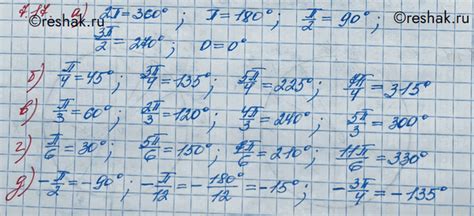 ©reshak.ru
7.17 а) 2π = 360°; π = 180°; π/2 = 90°;
3π/2 = 270°; 0 = 0°
б) π/4 = 45°; 3π/4 = 135°; 5π/4 = 225°; 7π/4 = 315°
в) π/3 = 60°; 2π/3 = 120°; 4π/3 = 240°; 5π/3 = 300°
г) π/6 = 30°; 5π/6 = 150°; 7π/6 = 210°; 11π/6 = 330°
д) -π/2 = -90°; -π/12 = -180°/12 = -15°; -3π/4 = -135°
©reshak.ru